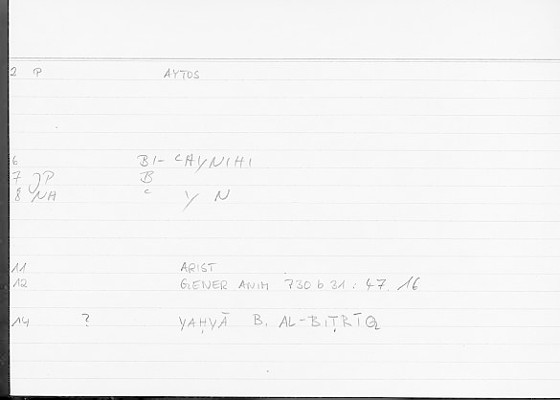 2 P AYTOS
6 BI- ʿAYNIHI
7 JP B
8 NH ʿ Y N
11 ARIST
12 GENER ANIM 730 b 31 : 47. 16
14 ? YAḤYĀ B. AL-BIṬRĪQ